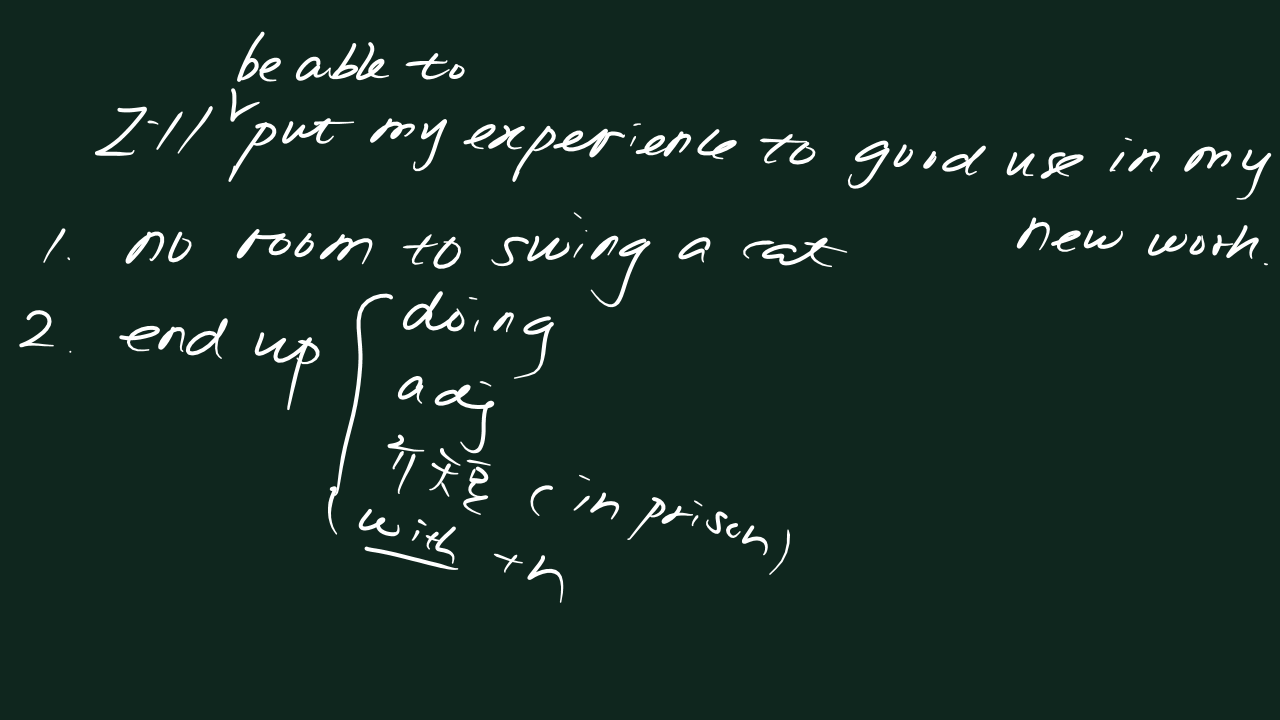 be able to
I'll put my experience to good use in my
new work.
1. no room to swing a cat
2. end up doing
adj
介短 (in prison)
with + n